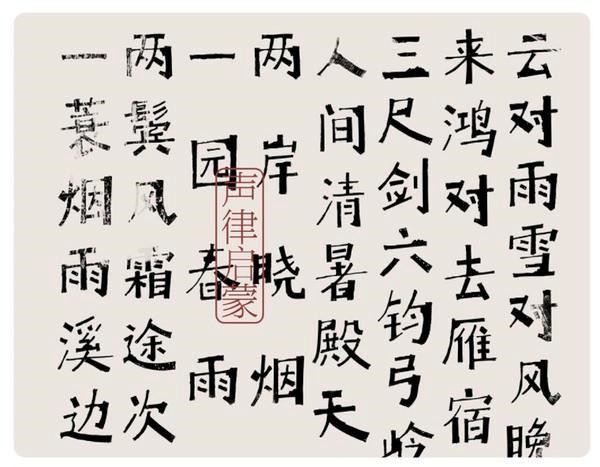 云对雨雪对风晚
来鸿对去雁宿
三尺剑六钧弓岭
人间清暑殿天
两岸晓烟
一园春雨
两鬓风霜途次
一蓑烟雨溪边
声律启蒙